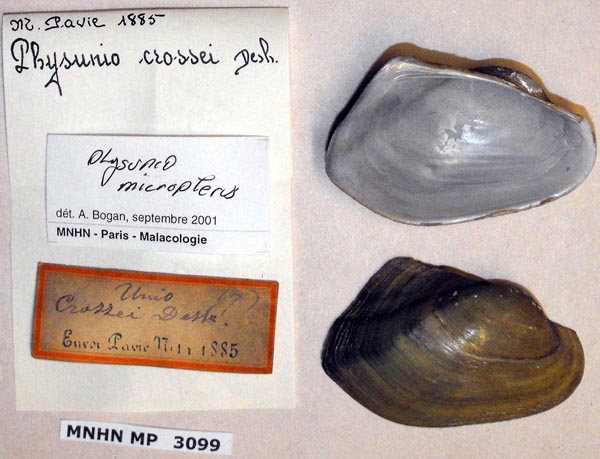 M. Pavie 1885
Physunio crossei Desh.
Physunio
micropterus
dét. A. Bogan, septembre 2001
MNHN - Paris - Malacologie
Unio (?)
Crossei Desh.
Envoi Pavie 1885
MNHN MP 3099